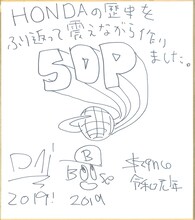 HONDAの歴史を
ふり返って震えながら作り
ました。
SDP
DAi
2019!
B
2019
令和元年